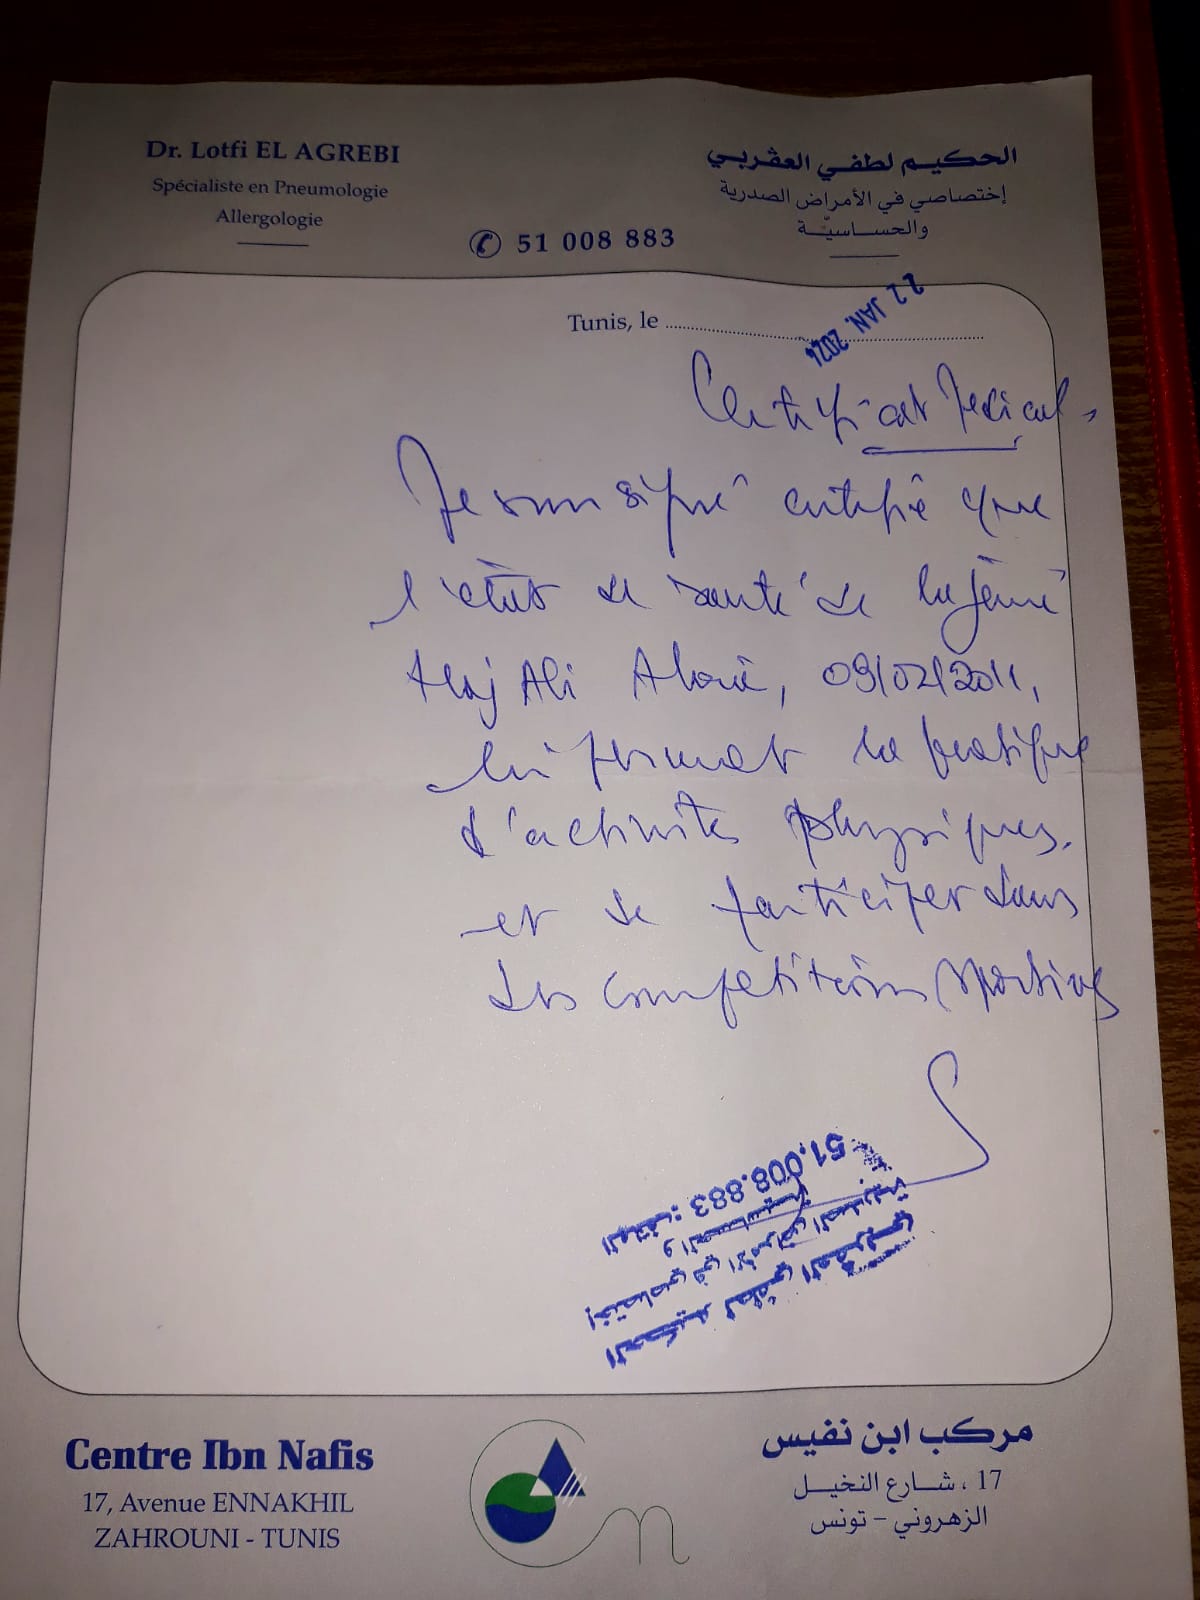 Dr. Lotfi EL AGREBI
Spécialiste en Pneumologie
Allergologie
الحكيم لطفي العڨربي
إختصاصي في الأمراض الصدرية
والحساسيّة
✆ 51 008 883
Tunis, le
22 JAN. 2024
Certificat Médical
Je soussigné certifie que
l'état de santé de
Haj Ali 09/02/2011,
lui permet la pratique
d'activités physiques.
et de participer dans
des compétitions sportives
الحكيم لطفي العڨربي
إختصاصي في الأمراض الصدرية
و الحساسية
الهاتف: 51.008.883
Centre Ibn Nafis
17, Avenue ENNAKHIL
ZAHROUNI - TUNIS
مركب ابن نفيس
17 ، شارع النخيل
الزهروني - تونس